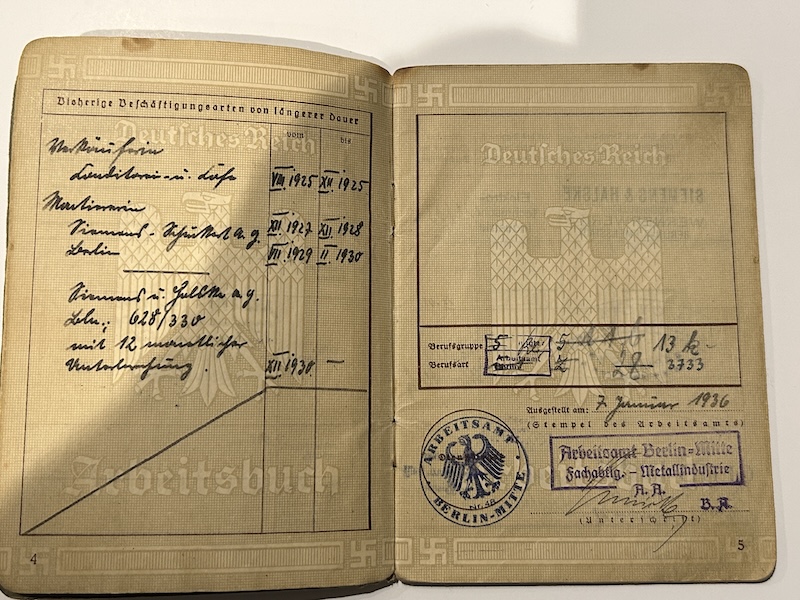 Bisherige Beschäftigungsarten von längerer Dauer
vom bis
Deutsches Reich
Verkäuferin
Konditorei- u. Café VIII 1925 XII 1925
Montiererin
Siemens-Schuckert A.G. XII 1927 XII 1928
Berlin VII 1929 II 1930
Siemens u. Halske A.G.
Bln.; 628/330
mit 12 monatlicher
Unterbrechung. XII 1930 —
Arbeitsbuch
4
Deutsches Reich
SIEMENS & HALSKE
Berufsgruppe 5 13 k
Berufsart 28 3733
Arbeitsamt
Ausgestellt am: 7. Januar 1936
(Stempel des Arbeitsamts)
ARBEITSAMT
BERLIN-MITTE
Nr. 48
Arbeitsamt Berlin-Mitte
Fachabtlg. - Metallindustrie
A. A.
B.A.
(Unterschrift)
5